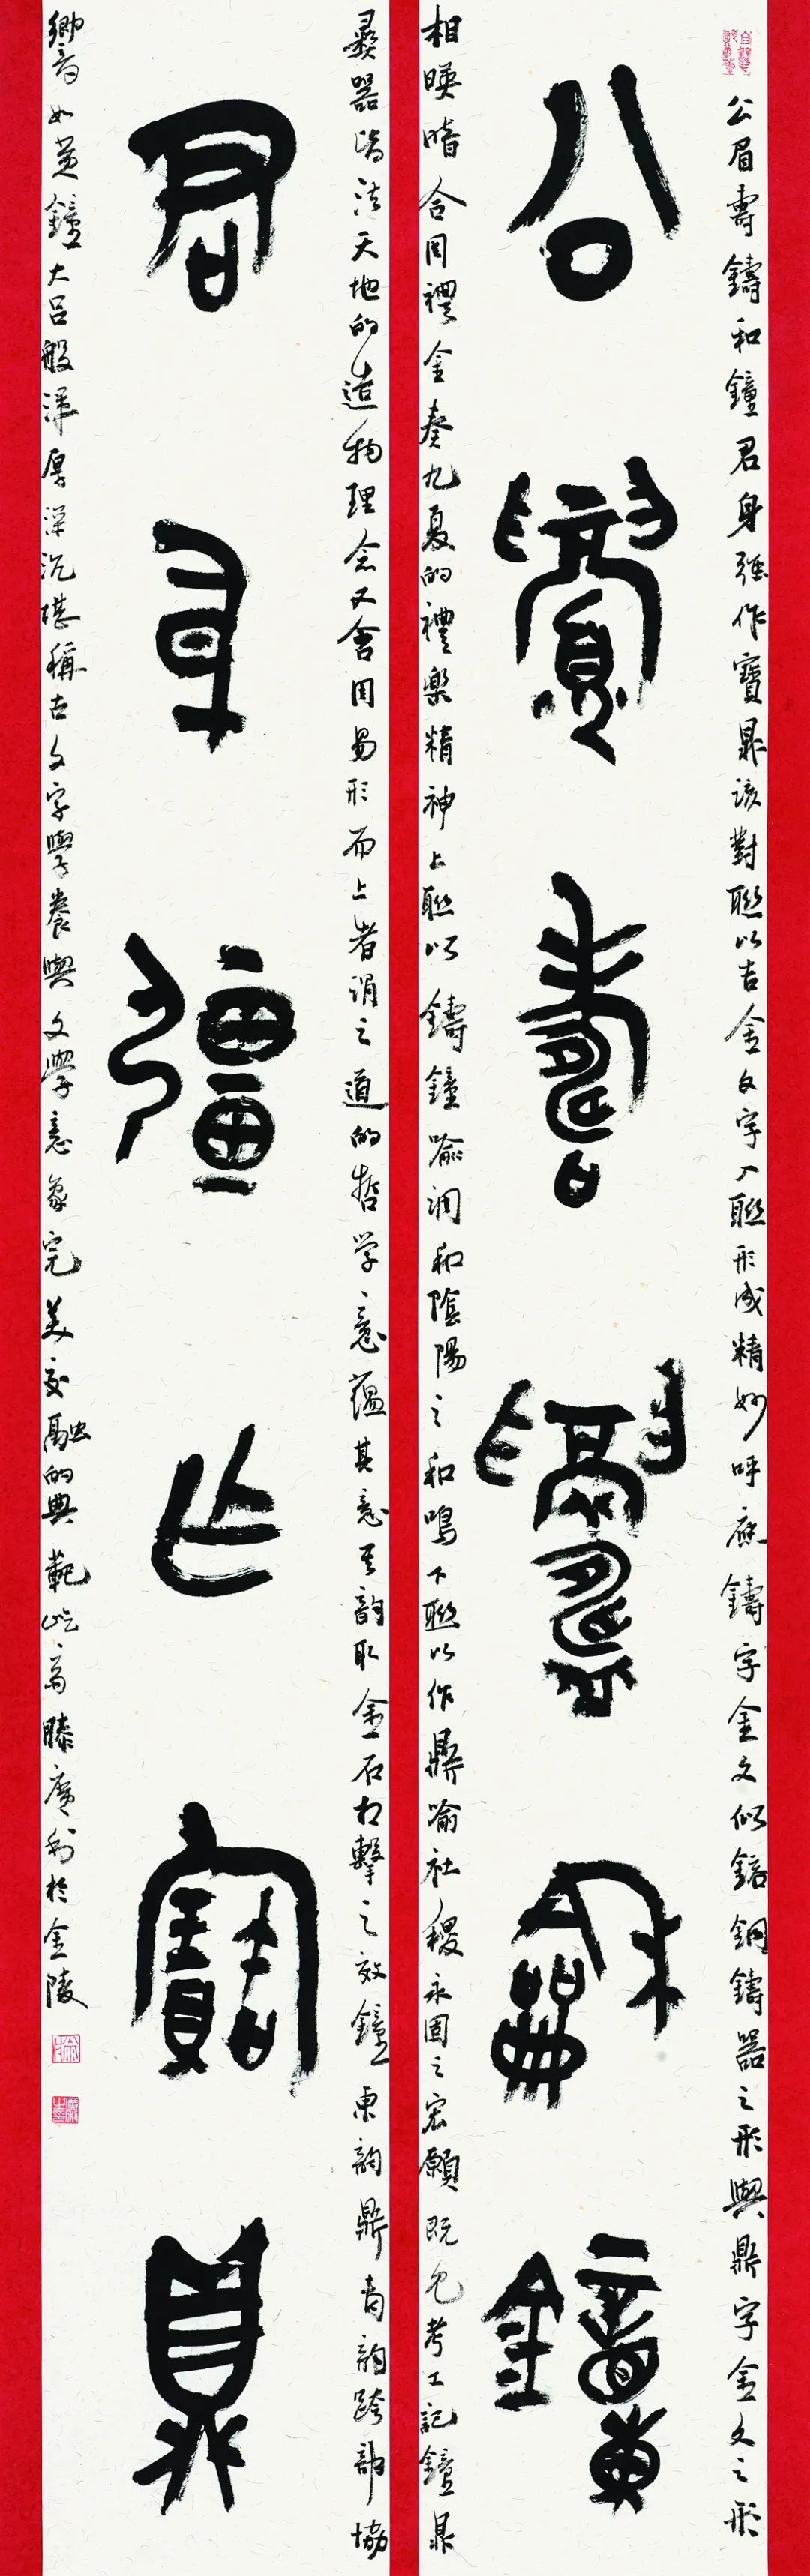 公眉壽鑄和鐘
公眉壽鑄和鐘君身強作寶鼎該對聯以吉金文字入聯形成精妙呼應鑄字金文似鎔銅鑄器之形與鼎字金文之形
相暎暗合周禮金奏九夏的禮樂精神上聯以鑄鐘喻調和陰陽之和鳴下聯以作鼎喻社稷永固之宏願既包考工記鐘鼎
君身彊作寶鼎
彝器皆法天地的造物理念又含周易形而上者謂之道的哲学意蘊其意其韵取金石相擊之效鐘東韵鼎青韵跨韵協
響如黃鐘大呂般渾厚深沉堪稱古文字學養與文學意象完美交融的典範屹髙滕廣於金陵